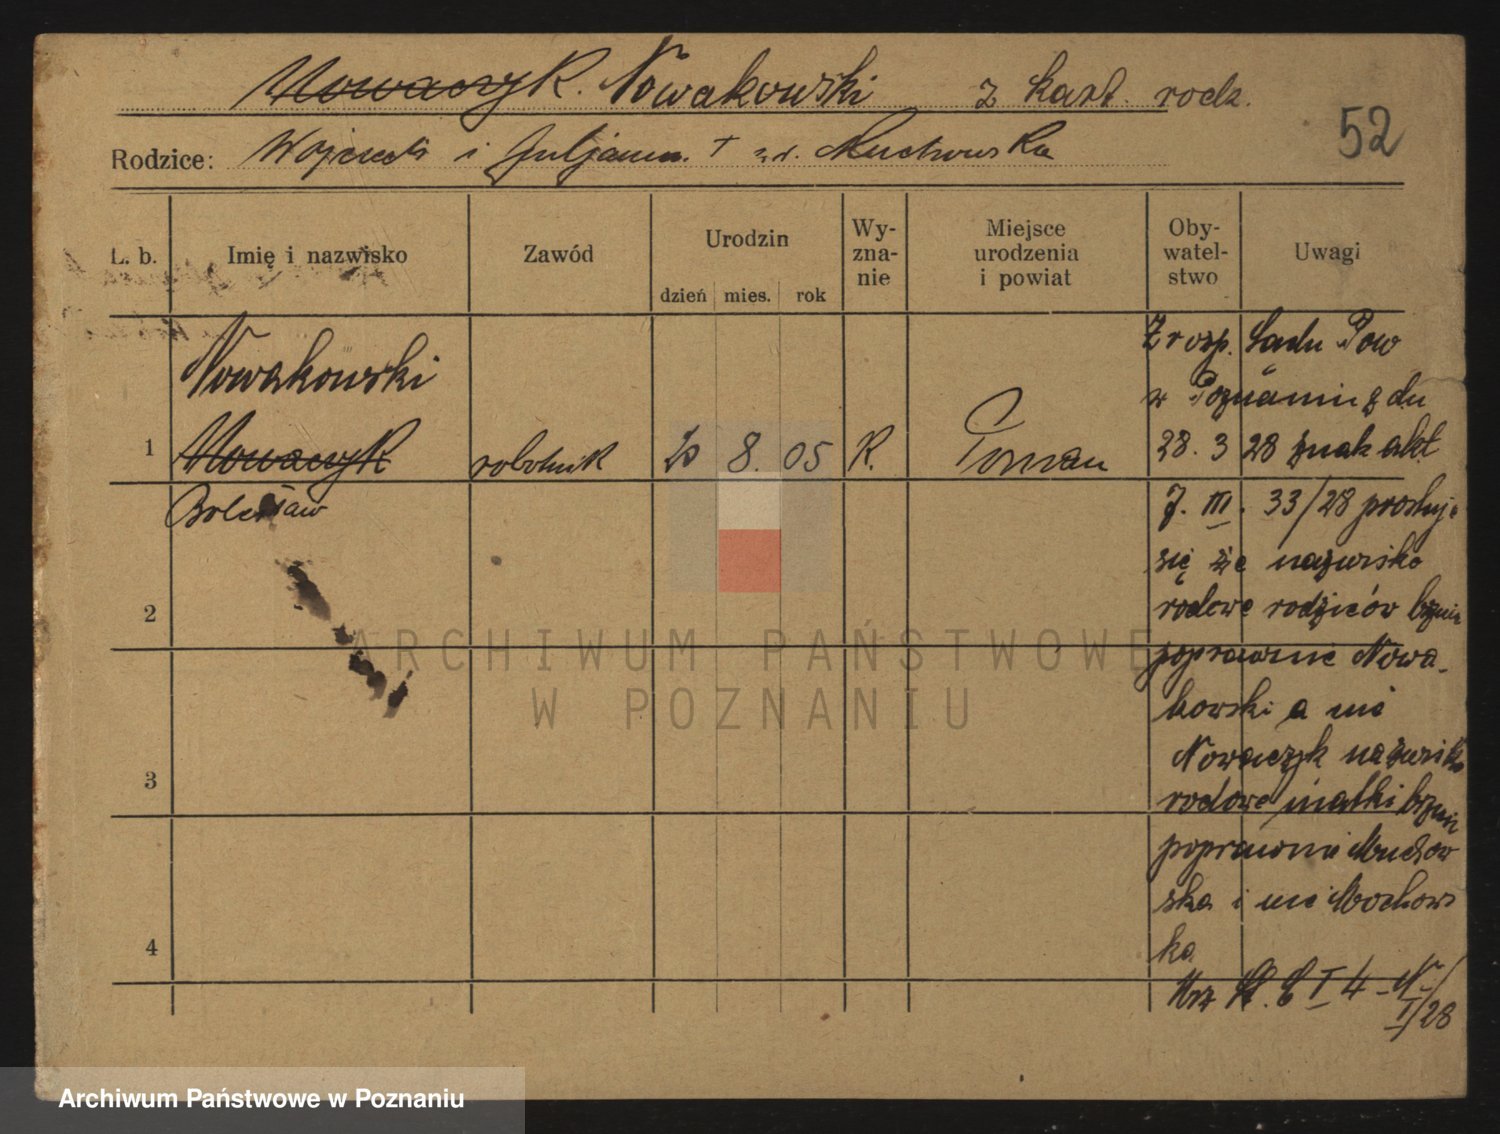 Nowaczyk. Nowakowski z kart. rodz.
52
Rodzice: Wojciech i Juljanna † z d. Muchowska
L. b. Imię i nazwisko Zawód Urodzin dzień mies. rok Wy-zna-nie Miejsce urodzenia i powiat Oby-watel-stwo Uwagi
Nowakowski
1 Nowaczyk robotnik 8. 05 R. Poznań
Bolesław
2
3
4
Z rozp. Sądu Pow
w Poznaniu z dn
28. 3 28 znak akt
7. III. 33/28 prostuje
się że nazwisko
rodowe rodziców brzmi
poprawnie Nowa-
kowski a nie
Nowaczyk nazwisko
rodowe matki brzmi
poprawnie Muchow
ska i nie Mochows
ka
I 4 - N -/
I/28
ARCHIWUM PAŃSTWOWE
W POZNANIU
Archiwum Państwowe w Poznaniu